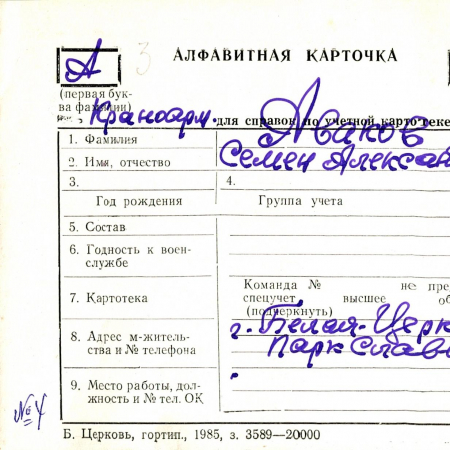 А 3 АЛФАВИТНАЯ КАРТОЧКА
(первая бук-
ва фамилии)
Краноарм. для справок по учетной картотеке
1. Фамилия Аваков
2. Имя, отчество Семен Алексан
3. 4.
Год рождения Группа учета
5. Состав
6. Годность к воен-
службе
Команда № не пре
7. Картотека спецучет, высшее об
(подчеркнуть)
8. Адрес м-житель- г. Белая-Церк
ства и № телефона Парк Слав
9. Место работы, дол-
жность и № тел. ОК
№ 4
Б. Церковь, гортип., 1985, з. 3589—20000